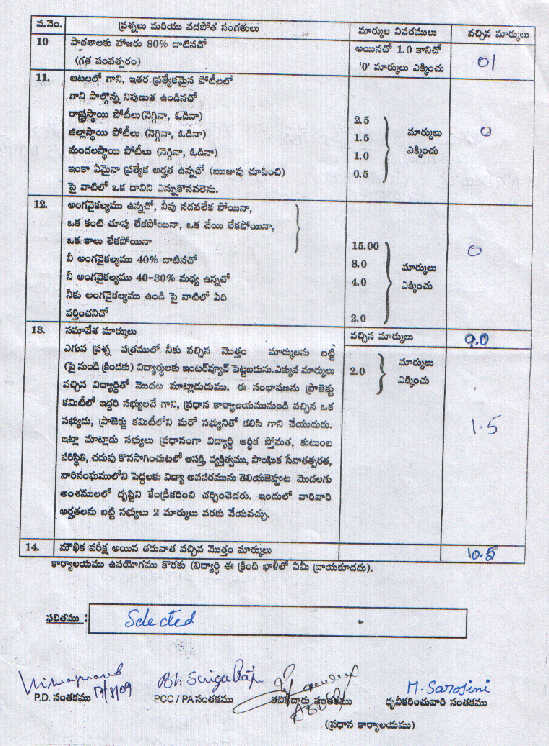 వ.నెం. ప్రశ్నలు మరియు పరిశోధిత సంగతులు మార్కుల వివరములు వచ్చిన మార్కులు
10 పాఠశాలకు హాజరు 80% దాటినచో అయినచో 1.0 కానిచో 01
(గత సంవత్సరం) '0' మార్కులు ఎక్కించు
11. ఆటలలో గాని, ఇతర ప్రత్యేకమైన పోటీలలో
గాని పాల్గొన్న నిపుణుత ఉండినచో
రాష్ట్రస్థాయి పోటీలు(నెగ్గినా, ఓడినా) 2.5 మార్కులు 0
జిల్లాస్థాయి పోటీలు (నెగ్గినా, ఓడినా) 1.5 ఎక్కించు
మండలస్థాయి పోటీలు (నెగ్గినా, ఓడినా) 1.0
ఇంకా ఏమైనా ప్రత్యేక అర్హత ఉన్నచో (ఋజువు చూపించి) 0.5
పై వాటిలో ఒక దానిని ఎన్నుకొనవలెను.
12. అంగవైకల్యము ఉన్నచో, నీవు నడవలేక పోయినా,
ఒక కంటి చూపు లేకపోయినా, ఒక చేయి లేకపోయినా,
ఒక కాలు లేకపోయినా 15.00 0
నీ అంగవైకల్యము 40% దాటినచో 8.0 మార్కులు
నీ అంగవైకల్యము 40-80% మధ్య ఉన్నచో 4.0 ఎక్కించు
నీకు అంగవైకల్యము ఉండి పై వాటిలో ఏది
వర్తించనిచో 2.0
13. సమావేశ మార్కులు వచ్చిన మార్కులు 9.0
ఎగువ ప్రశ్న పత్రములో నీకు వచ్చిన మొత్తం మార్కులను బట్టి మార్కులు
(పై నుండి క్రిందకు) విద్యార్థులకు ఇంటర్‌వ్యూన్ పెట్టబడును.ఎక్కువ మార్కులు 2.0 ఎక్కించు
వచ్చిన విద్యార్థితో మొదట మాట్లాడుదుము. ఈ సంభాషణను ప్రాజెక్టు
కమిటీలో ఇద్దరి సభ్యులచే గాని, ప్రధాన కార్యాలయమునుండి వచ్చిన ఒక
సభ్యుడు, ప్రాజెక్టు కమిటీలోని మరో సభ్యునితో కలిసి గాని చేయుదురు. 1.5
ఇట్లా మాట్లాడు సభ్యులు ప్రధానంగా విద్యార్థి ఆర్థిక స్తోమత, కుటుంబ
పరిస్థితి, చదువు కొనసాగించుటలో ఆసక్తి, వ్యక్తిత్వము, సాంఘిక సేవాతత్పరత,
నారిసంఘములోని పెద్దలకు విద్యా అవసరమును తెలియజెప్పుట మొదలగు
అంశములలో దృష్టిని కేంద్రీకరించి చర్చించెదరు. ఇందులో వారివారి
అర్హతలను బట్టి సభ్యులు 2 మార్కులు వరకు వేయవచ్చు.
14. మౌఖిక పరీక్ష అయిన తరువాత వచ్చిన మొత్తం మార్కులు 10.5
కార్యాలయము ఉపయోగము కొరకు (విద్యార్థి ఈ క్రింది ఖాళీలో ఏమీ వ్రాయకూడదు).
ఫలితము : Selected
P.D. సంతకము PCC / PA సంతకము సంతకము M. Sarojini
ధృవీకరించువారి సంతకము
(ప్రధాన కార్యాలయము)